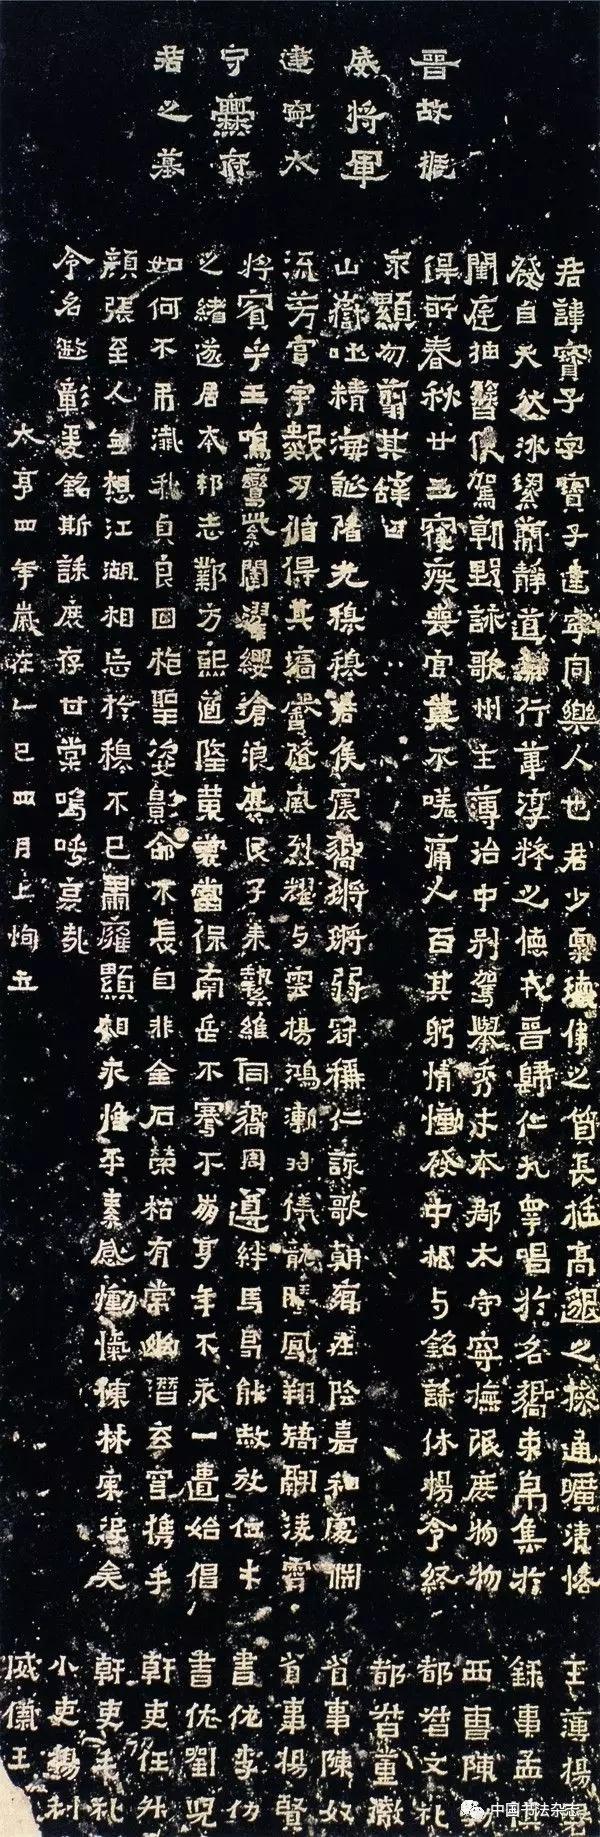 晋故振
威将軍
建寧太
守爨府
君之墓
君諱寶子字寶子建寧同樂人也君少稟瓌偉之質長挺高邈之操通曠清恪
發自天然冰絜簡靜道兼行葦淳粹之德戎晉歸仁九皐唱於名響束帛集於
閨庭抽簪俟駕朝野詠歌州主簿治中別駕舉秀才本郡太守寧撫氓庶物物
得所春秋廿三寢疾喪官莫不嗟痛人百其躬情慟發中相与銘誄休揚令終
永顯勿翦其辞曰
山嶽吐精海誕陼光穆穆君侯震響鏘鏘弱冠稱仁詠歌朝鄉在陰嘉和處淵
流芳宮宇數刃循得其墻馨隨風烈耀与雲揚鴻漸羽儀龍騰鳳翔矯翮淩霄
將賓乎王鳴鸞紫闥濯纓滄浪庶民子来縶維同響周遵絆馬曷能赦放位才
之緒遂居本邦志鄴方熙道隆黃裳當保南岳不騫不崩享年不永一匱始倡
如何不弔殲我貞良回枹聖姿影命不長自非金石榮枯有常幽潛玄穹攜手
顏張至人無想江湖相忘於穆不已肅雍顯相永惟平素感慟愾慷林宗沒矣
令名遐彰爰銘斯誄庶存甘棠嗚呼哀哉
大亨四年歲在乙巳四月上恂立
主簿楊磐
錄事孟慎
西曹陳勃
都督文礼
都督董徹
省事陳奴
省事楊賢
書佐李仂
書佐劉兒
幹吏任升
幹吏毛礼
小吏楊利
威儀王
中国书法杂志